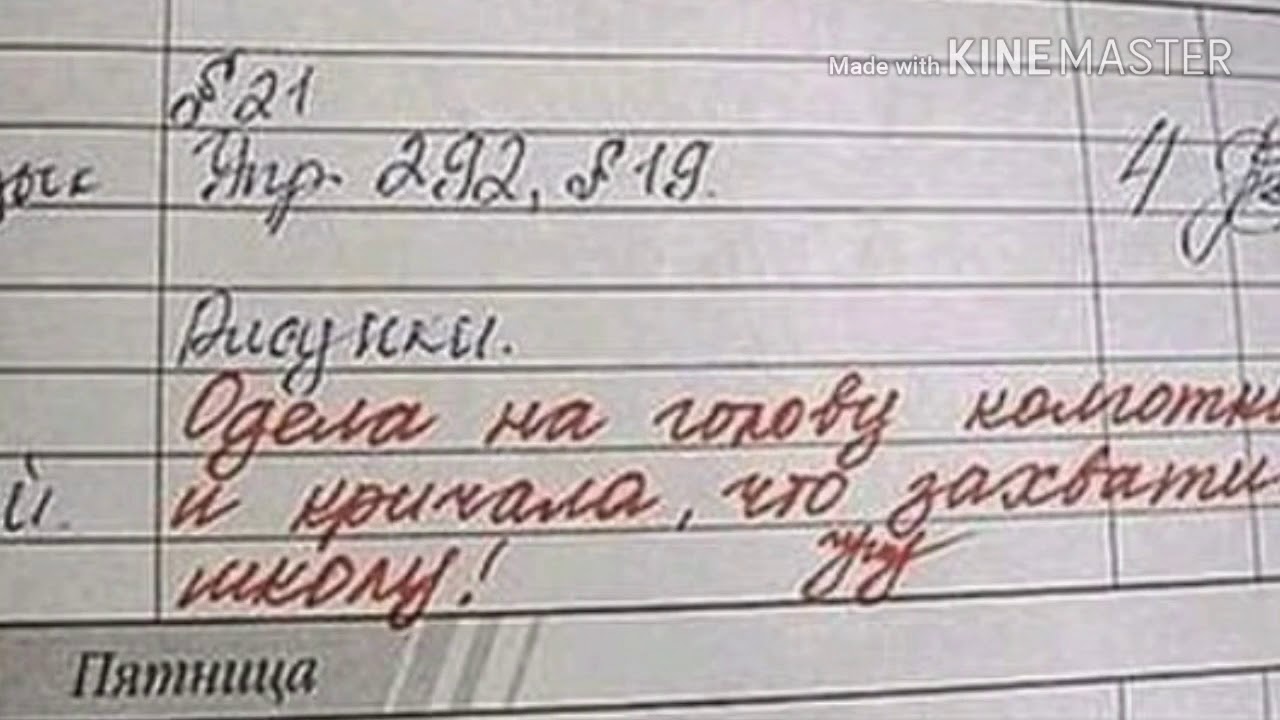 Made with KINEMASTER
§ 21
Упр. 292, § 19. 4
Рисунки.
Одела на голову колготки
и кричала, что захвати
школу!
й.
Пятница